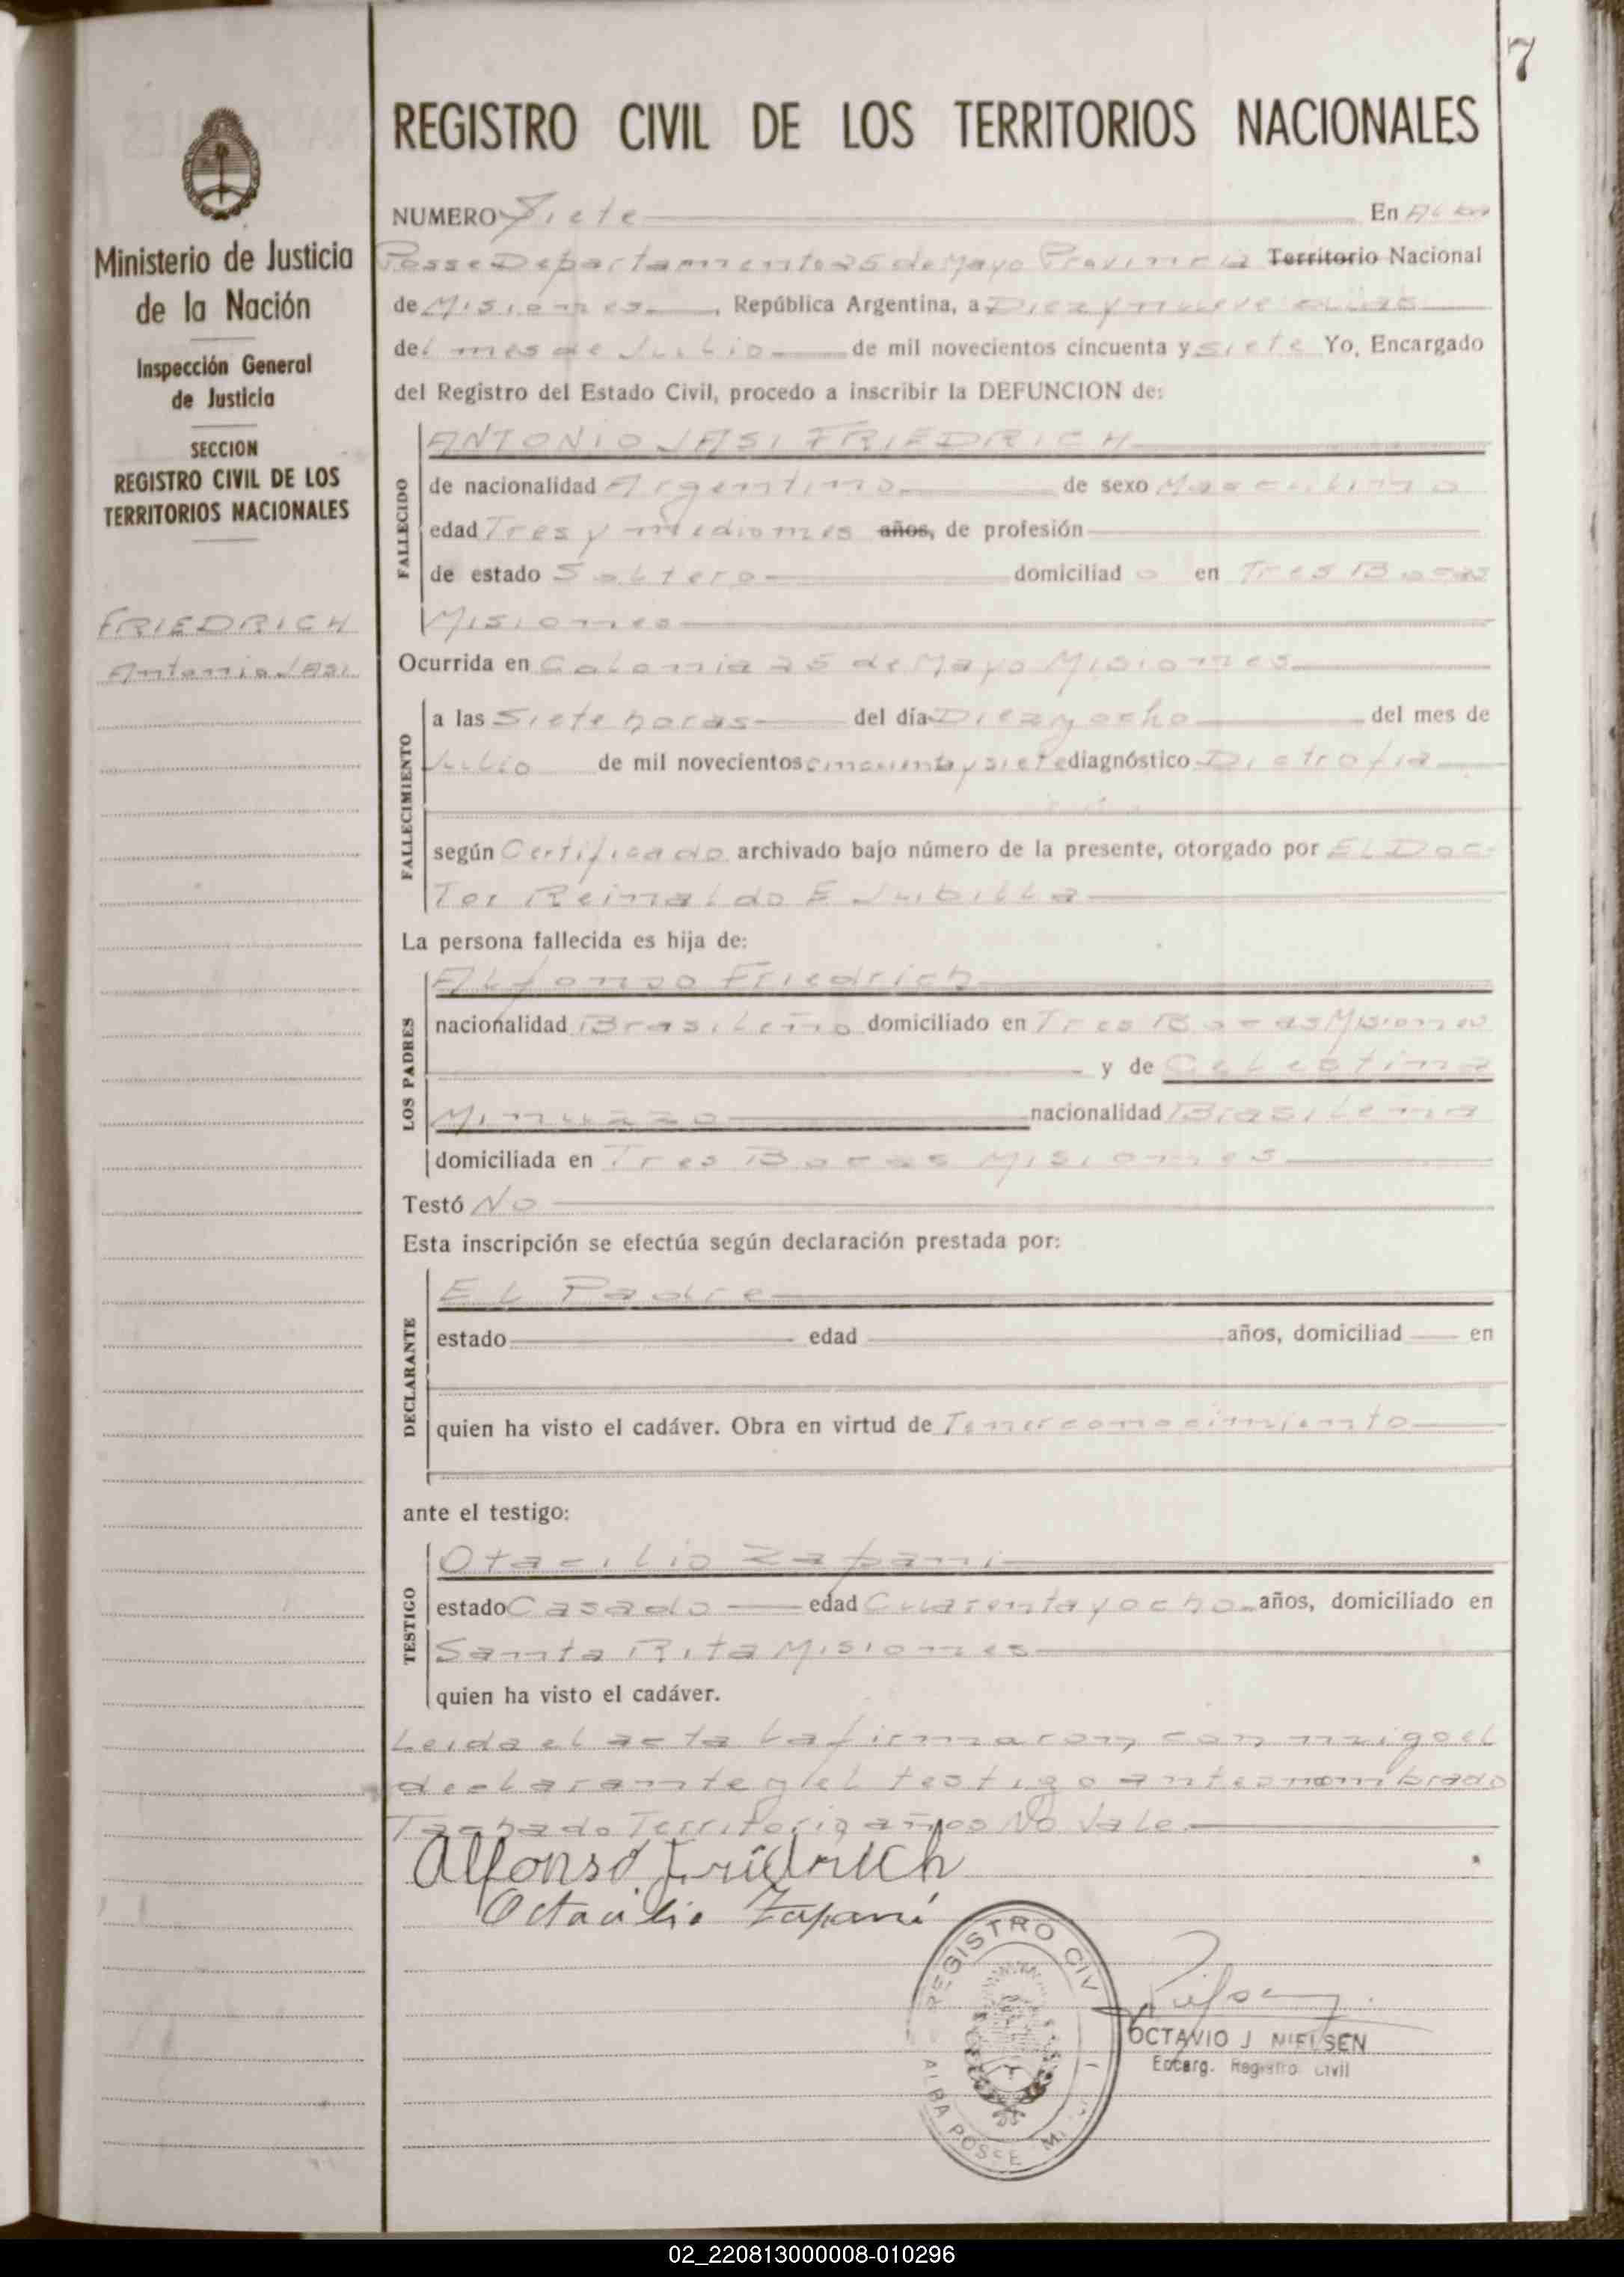 7
REGISTRO CIVIL DE LOS TERRITORIOS NACIONALES
Ministerio de Justicia
de la Nación
Inspección General
de Justicia
SECCION
REGISTRO CIVIL DE LOS
TERRITORIOS NACIONALES
FRIEDRICH
Antonio JASI
NUMERO Siete En Alba
Posse Departamento 25 de Mayo Provincia Territorio Nacional
de Misiones, República Argentina, a Diez y nueve dias
del mes de Julio de mil novecientos cincuenta y siete Yo, Encargado
del Registro del Estado Civil, procedo a inscribir la DEFUNCION de:
FALLECIDO
ANTONIO JASI FRIEDRICH
de nacionalidad Argentino de sexo Masculino
edad Tres y medio mes años, de profesión
de estado Soltero domiciliado en Tres Bocas
Misiones
Ocurrida en Colonia 25 de Mayo Misiones
FALLECIMIENTO
a las Siete horas del día Diez y ocho del mes de
Julio de mil novecientos cincuenta y siete diagnóstico Distrofia
según Certificado archivado bajo número de la presente, otorgado por El Doc-
Tor Reinaldo E Jubilla
La persona fallecida es hija de:
LOS PADRES
Alfonso Friedrich
nacionalidad Brasileño domiciliado en Tres Bocas Misiones
y de Celestina
Minuzzo nacionalidad Brasilena
domiciliada en Tres Bocas Misiones
Testó No
Esta inscripción se efectúa según declaración prestada por:
DECLARANTE
El Padre
estado edad años, domiciliad en
quien ha visto el cadáver. Obra en virtud de Tener conocimiento
ante el testigo:
TESTIGO
Otacilio Zapani
estado Casado edad Cuarenta y ocho años, domiciliado en
Santa Rita Misiones
quien ha visto el cadáver.
Leida el acta la firmaron con migo el
declarante y el testigo antes nombrado
Tachado Territorio años No Vale
Alfonso Fridrich
Octacilio Zapani
REGISTRO CIVIL
ALBA POSSE
OCTAVIO J NIELSEN
Encarg. Registro Civil
02_220813000008-010296